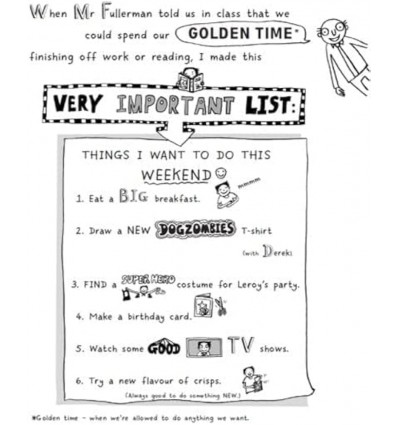 When Mr Fullerman told us in class that we
could spend our GOLDEN TIME*
finishing off work or reading, I made this
VERY IMPORTANT LIST:
THINGS I WANT TO DO THIS
WEEKEND
mmmm
1. Eat a BIG breakfast.
2. Draw a NEW DOGZOMBIES T-shirt
(with Derek).
3. FIND a SUPER HERO costume for Leroy's party.
4. Make a birthday card.
5. Watch some GOOD TV shows.
6. Try a new flavour of crisps.
(Always good to do something NEW.)
*Golden time - when we're allowed to do anything we want.